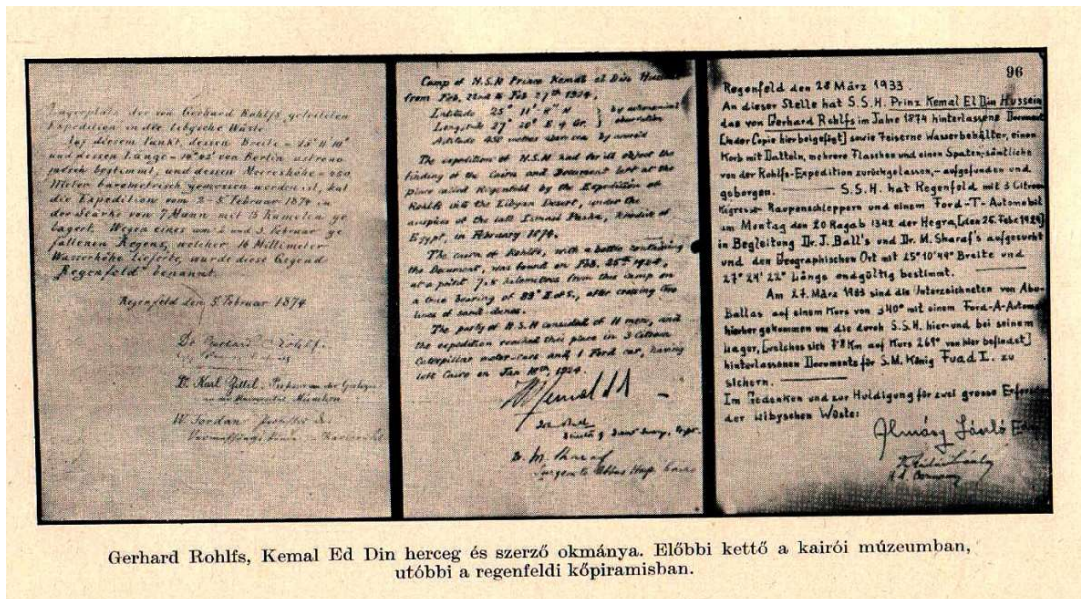 Lagerplatz der von Gerhard Rohlfs geleiteten
Expedition in der libysche Wüste
Auf diesem Punkt, dessen Breite = 25° 11'
und dessen Länge = von Berlin astrono
misch bestimmt, und dessen Meereshöhe =
Meter barometrisch gemessen worden ist, hat
die Expedition vom 2-5. Februar 1874 in
der Stärke von 7 Mann mit 15 Kamelen ge
lagert. Wegen eines vom 2 und 3. Februar ge
fallenen Regens, welcher 16 Millimeter
Wasserhöhe lieferte, wurde diese Gegend
"Regenfeld" benannt.
Regenfeld den 5. Februar 1874
Dr Gerhard Rohlfs.
Dr. Karl Zittel. Professor an der
an der Universität München
W Jordan
Camp of H.S.H Prince Kemal el Din Hussein
from Feb. 22nd to Feb 27th 1924.
Latitude 25° 11' 0" N } by astronomical
Longitude 27° 20' E of Gr. } observation
Altitude 450 metres above sea by aneroid
The expedition of H.S.H had for its object the
finding of the Cairn and Document left at the
place called Regenfeld by the Expedition of
Rohlfs into the Libyan Desert, under the
auspices of the late Ismail Pasha, Khedive of
Egypt, in February 1874.
The cairn of Rohlfs, with a bottle containing
the Document, was found on Feb. 25th 1924,
at a point 7.5 kilometres from this camp on
a true bearing of 88° E of S., after crossing two
lines of sand dunes.
The party of H.S.H consisted of 11 men, and
the expedition reached this place in 3 Citroen
Caterpillar motor-cars and 1 Ford car, having
left Cairo on Jan 10th, 1924.
Kemal
Desert Survey, Egypt.
Dr. M. Sharaf
Surgeon to Abbas Hosp. Cairo
96
Regenfeld den 28 März 1933.
An dieser Stelle hat S.S.H. Prinz Kemal El Din Hussein
das von Gerhard Rohlfs im Jahre 1874 hinterlassene Document
[in der Copie hier beigefügt] sowie 7 eiserne Wasserbehälter, einen
Korb mit Datteln, mehrere Flaschen und einen Spaten,-sämtliche
von der Rohlfs-Expedition zurückgelassen,-aufgefunden und
geborgen. S.S.H. hat Regenfeld mit 3 Citroen
Kegresse Raupenschleppern und einem Ford-T-Automobil
am Montag den 20 Ragab 1342 der Hegra, [den 25. Febr. 1924]
in Begleitung Dr. J. Ball's und Dr. M. Sharaf's aufgesucht
und den Geographischen Ort mit 25° 10' 49" Breite und
27° 24' 22" Länge endgültig bestimmt.
Am 27. März 1933 sind die Unterzeichneten von Abu-
Ballas auf einem Kurs von 340° mit einem Ford-A-Automobil
hierher gekommen um die durch S.S.H. hier und bei seinem
Lager, [welches sich 7'8 Km auf Kurs 269° von hier befindet]
hinterlassenen Documente für S.M. König Fuad I. zu
sichern.
Im Gedenken und zur Huldigung für zwei grosse Erforscher
der Libyschen Wüste:
Almásy László
Gerhard Rohlfs, Kemal Ed Din herceg és szerző okmánya. Előbbi kettő a kairói múzeumban,
utóbbi a regenfeldi kőpiramisban.